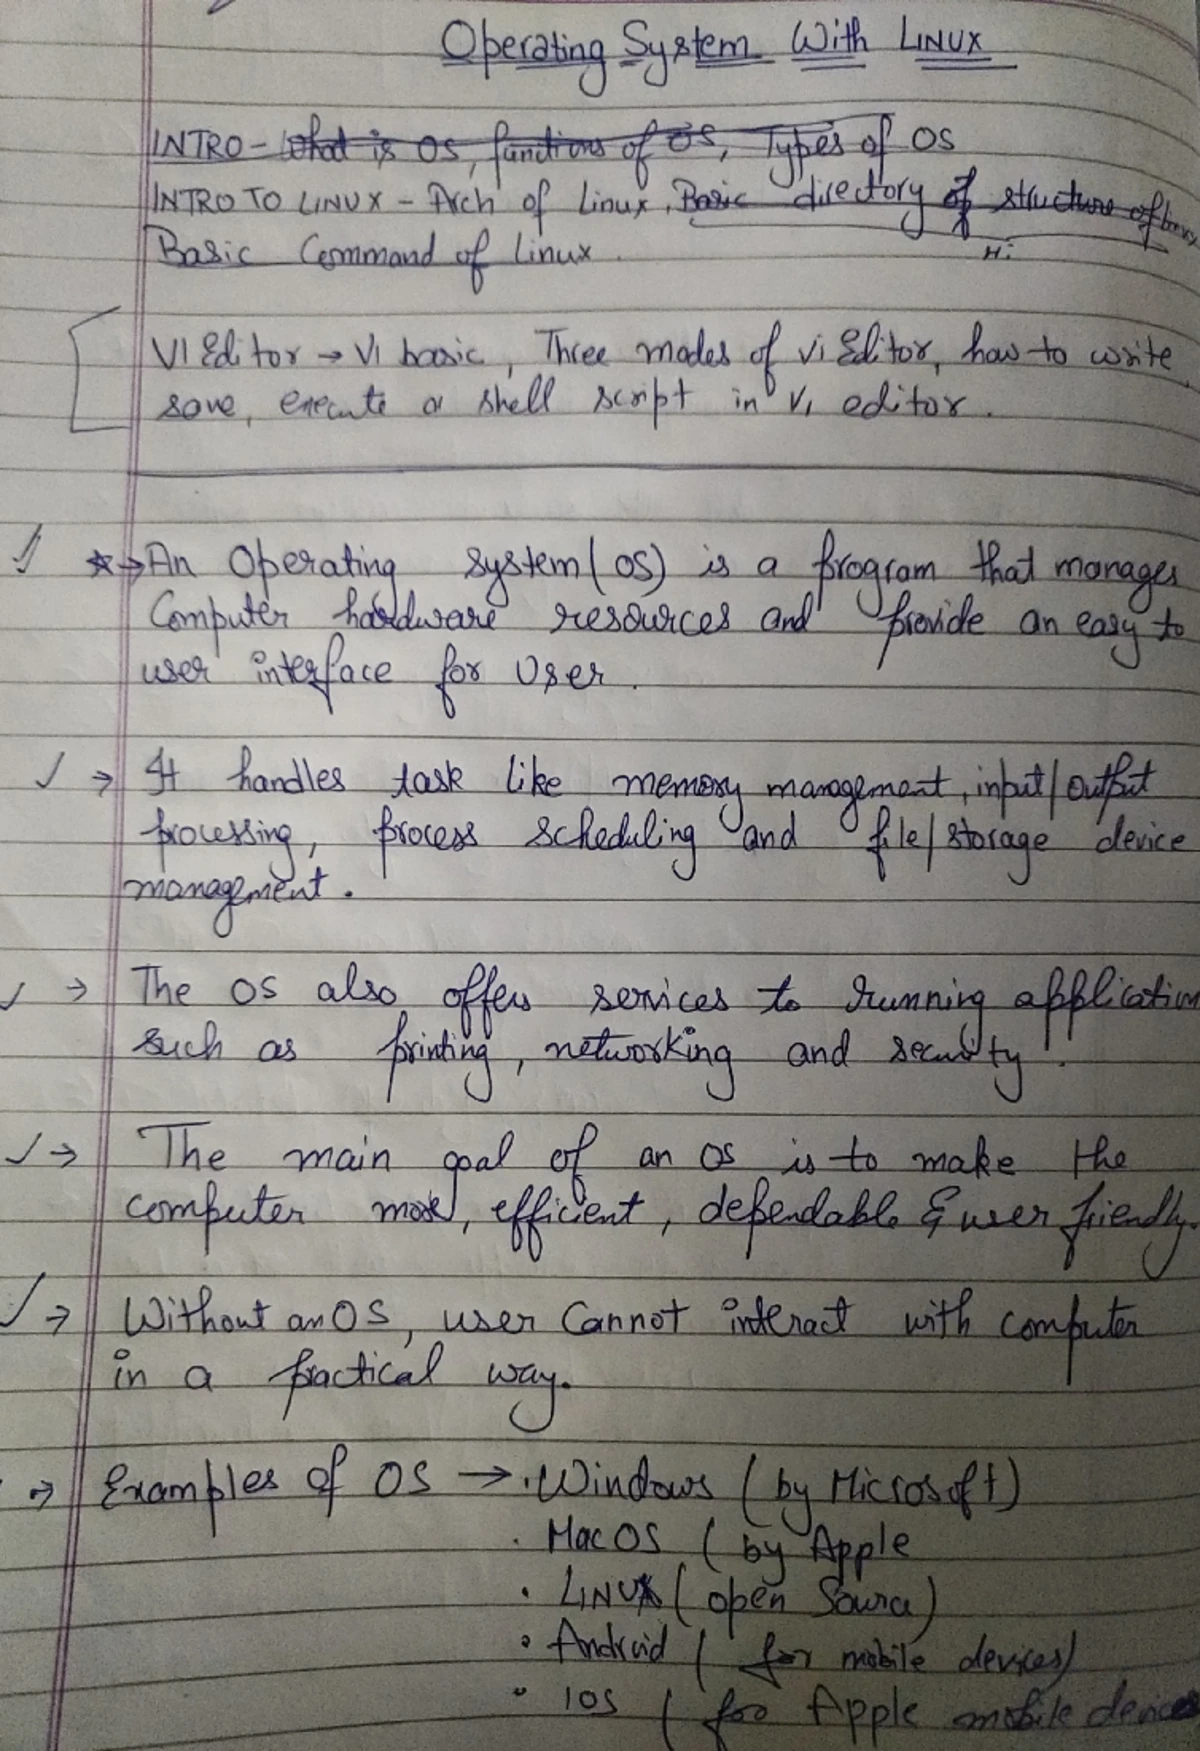 Operating System With LINUX
INTRO - What is OS, functions of OS, Types of OS
INTRO TO LINUX - Arch of Linux, Basic directory of structure of
Hi
Basic Command of Linux.
VI Editor → VI basic, Three modes of Vi Editor, how to write
save, execute a shell script in Vi editor.
★→ An Operating system (OS) is a program that manages
Computer hardware resources and provide an easy to
user interface for User.
→ It handles task like memory management, input/output
processing, process scheduling and file/storage device
management.
→ The OS also offers services to running application
such as printing, networking and security.
→ The main goal of an OS is to make the
computer more, efficient, dependable & user friendly.
→ Without an OS, user Cannot interact with computer
in a practical way.
→ Examples of OS → • Windows (by Microsoft)
• Mac OS (by Apple
• LINUX (open Source)
• Android (for mobile devices)
• IOS (for Apple mobile devices